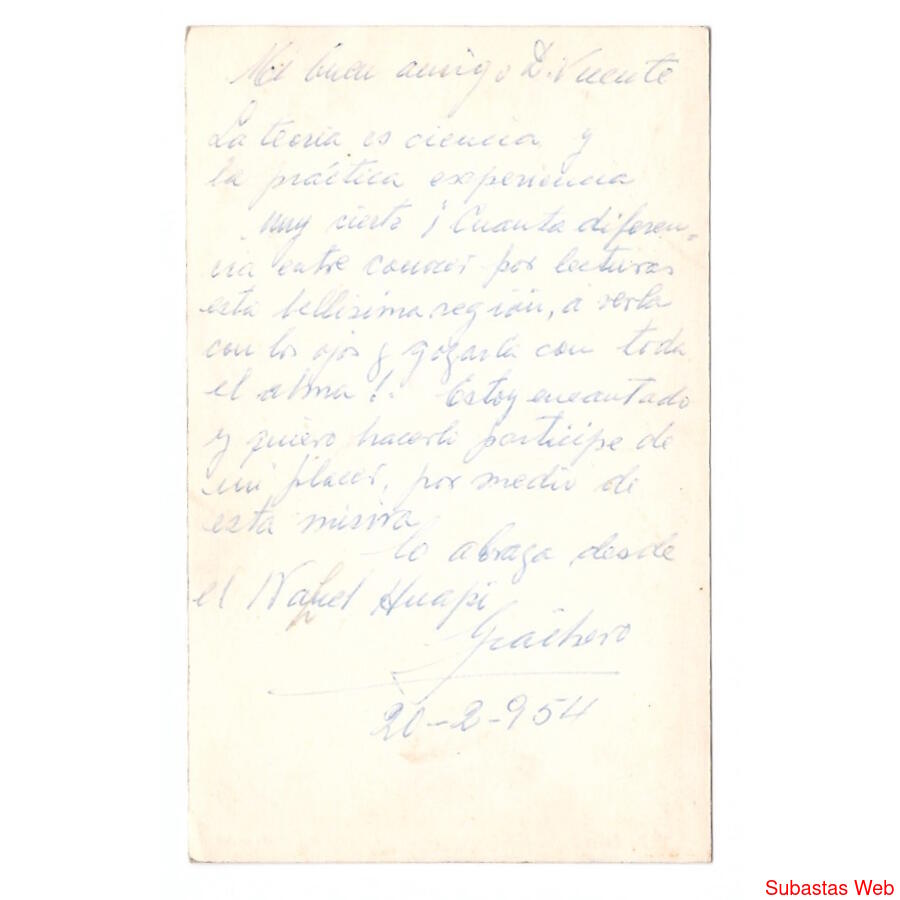 Mi buen amigo D. Vicente
La teoria es ciencia y
la práctica experiencia
Muy cierto ¡Cuanta diferen-
cia entre conocer por lecturas
esta bellisima región, a verla
con los ojos y gozarla con toda
el alma!. Estoy encantado
y quiero hacerle participe de
mi placer, por medio de
esta misiva
lo abraza desde
el Nahuel Huapi
20-2-954
Subastas Web